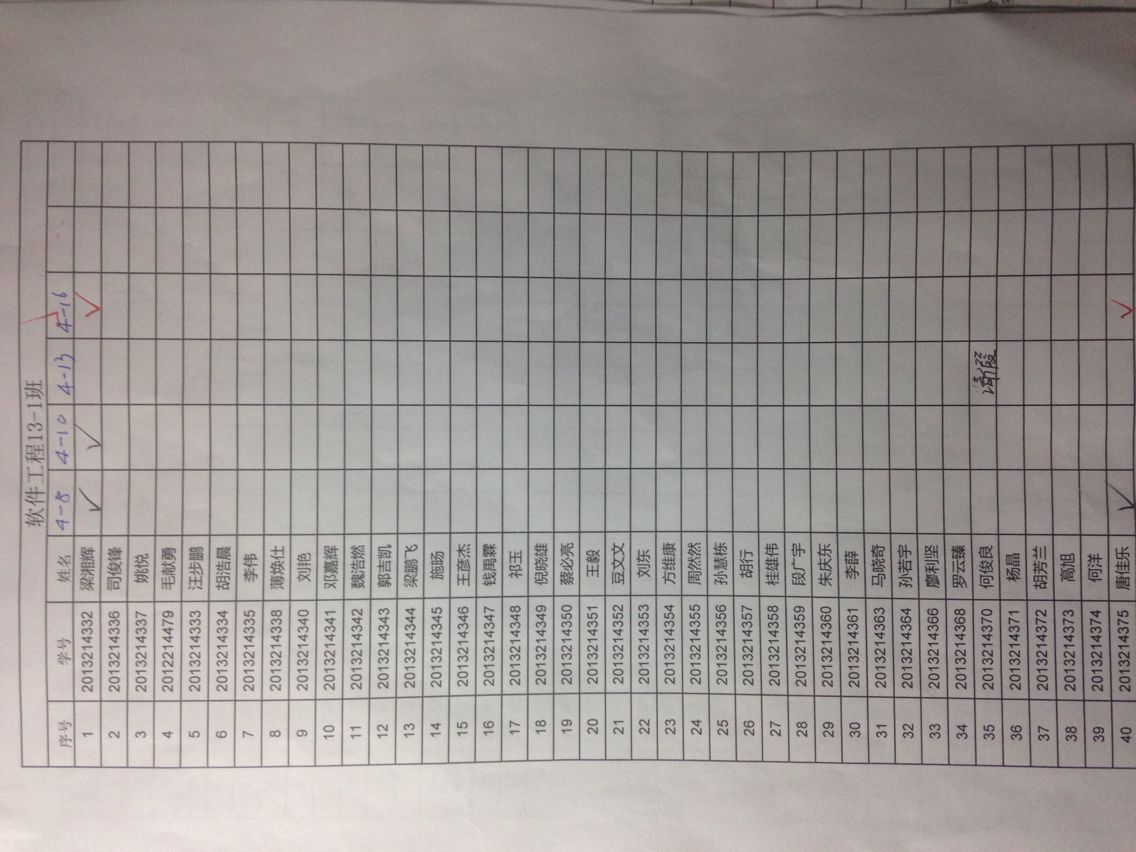 软件工程13-1班
序号 学号 姓名 4-8 4-10 4-13 4-16
1 2013214332 梁湘辉 ✓ ✓ ✓
2 2013214336 司俊锋
3 2013214337 姚悦
4 2012214479 毛献勇
5 2013214333 汪步鹏
6 2013214334 胡浩晨
7 2013214335 李伟
8 2013214338 薄焕仕
9 2013214340 刘艳
10 2013214341 邓嘉辉
11 2013214342 魏浩燃
12 2013214343 郭吉凯
13 2013214344 梁鹏飞
14 2013214345 施旸
15 2013214346 王彦杰
16 2013214347 钱禹霖
17 2013214348 祁玉
18 2013214349 倪晓雄
19 2013214350 蔡必亮
20 2013214351 王毅
21 2013214352 豆文文
22 2013214353 刘东
23 2013214354 方维康
24 2013214355 周然然
25 2013214356 孙慧栋
26 2013214357 胡行
27 2013214358 桂雄伟
28 2013214359 段广宇
29 2013214360 朱庆东
30 2013214361 李薛
31 2013214363 马晓奇
32 2013214364 孙若宇
33 2013214366 廖利坚
34 2013214368 罗云臻
35 2013214370 何俊良 请假
36 2013214371 杨晶
37 2013214372 胡芳兰
38 2013214373 高旭
39 2013214374 何洋
40 2013214375 唐佳乐 ✓ ✓